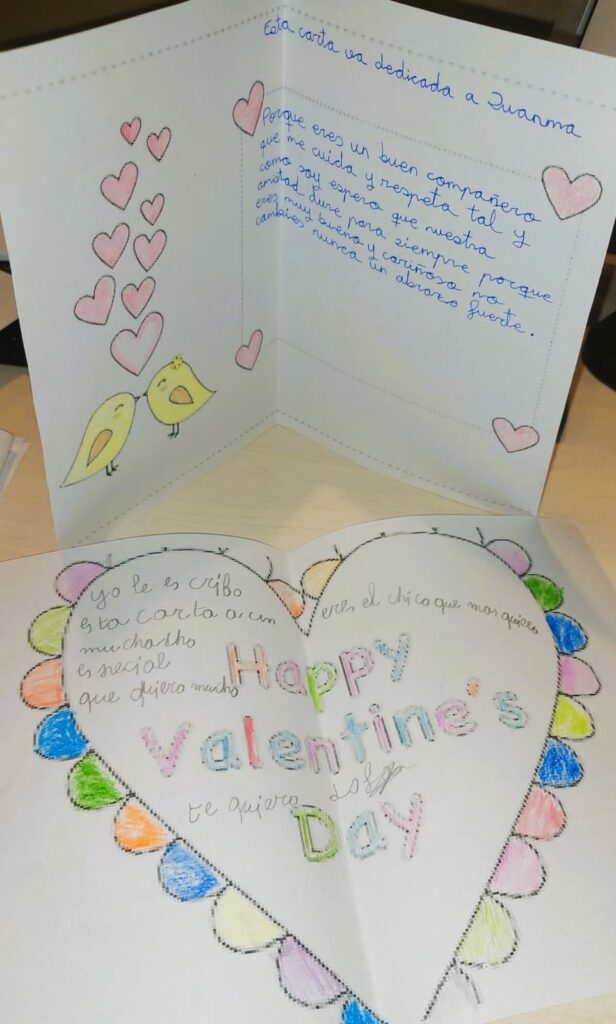 Esta carta va dedicada a Juanma
Porque eres un buen compañero
que me cuida y respeta tal y
como soy espero que nuestra
amistad dure para siempre porque
eres muy bueno y cariñoso no
cambies nunca un abrazo fuerte.
yo le escribo
esta carta a un
muchacho
especial
que quiero mucho
eres el chico que mas quiero
Happy
Valentine's
te quiero
Day